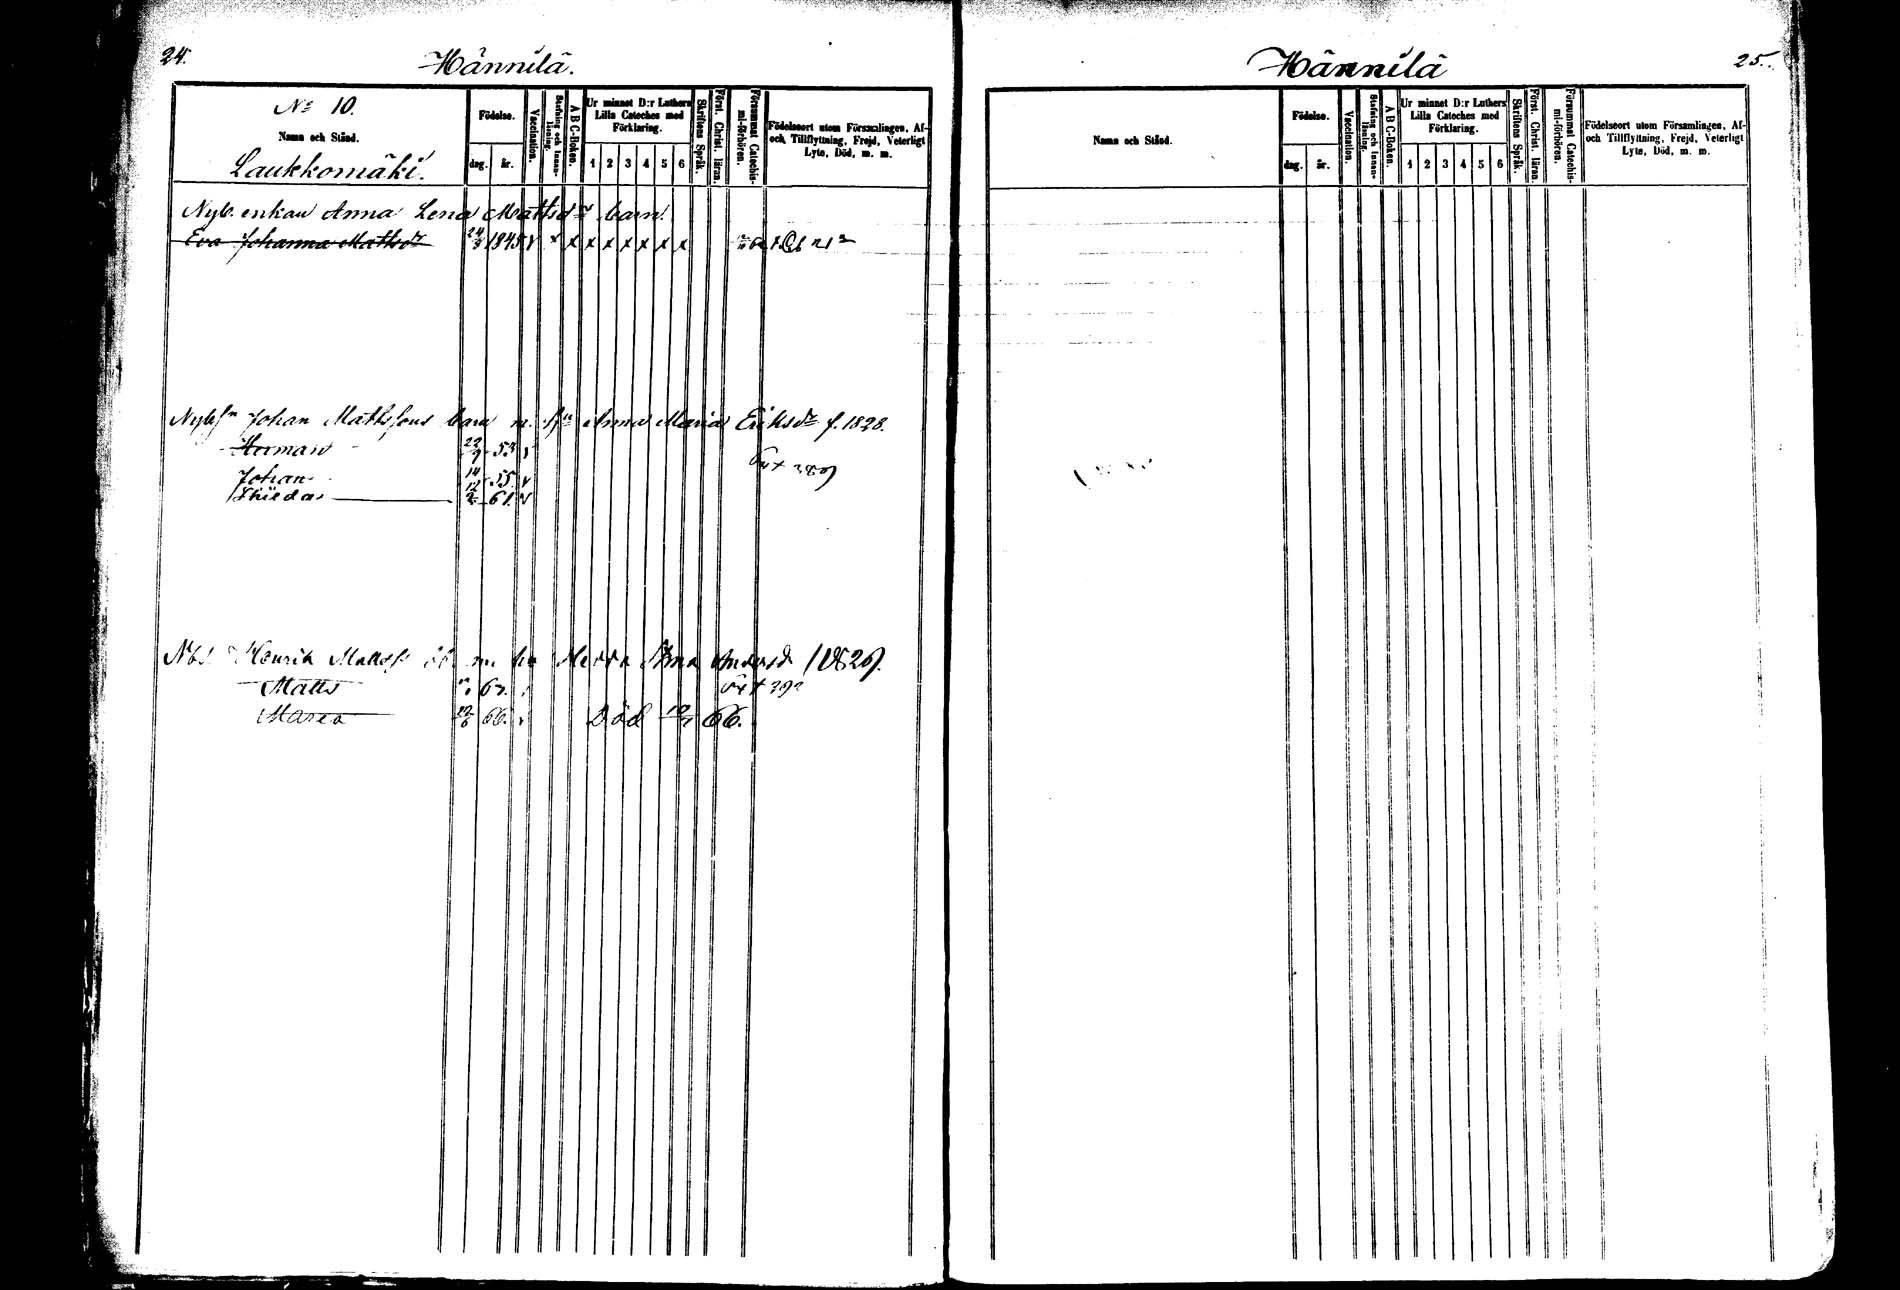 24.
Hännilä.
No 10.
Namn och Stånd.
Laukkomäki.
Födelse.
dag. år.
Vaccination.
Stafning och Innanläsning.
A B C-Boken.
Ur minnet D:r Luthers Lilla Cateches med Förklaring.
1 2 3 4 5 6
Skriftens Språk.
Först. Christ. läran.
Försummat Catechismi-förhören.
Födelseort utom Församlingen, Af- och Tillflyttning, Frejd, Veterligt Lyte, Död, m. m.
Nyb. enkan Anna Lena Mattsdr barn.
Eva Johanna Mattsdr 24/3 1845 v x x x x x x x x
Johan Mathssons barn m. Anna Maria Eriksdr f. 1828.
Herman 22/9 53 v
Johan 14/12 55. v
61. v
Henrik Hedda Andersdr
Matts
Maria 66. v Död 66.
Hännilä
25.
Namn och Stånd.
Födelse.
dag. år.
Vaccination.
Stafning och Innanläsning.
A B C-Boken.
Ur minnet D:r Luthers Lilla Cateches med Förklaring.
1 2 3 4 5 6
Skriftens Språk.
Först. Christ. läran.
Försummat Catechismi-förhören.
Födelseort utom Församlingen, Af- och Tillflyttning, Frejd, Veterligt Lyte, Död, m. m.